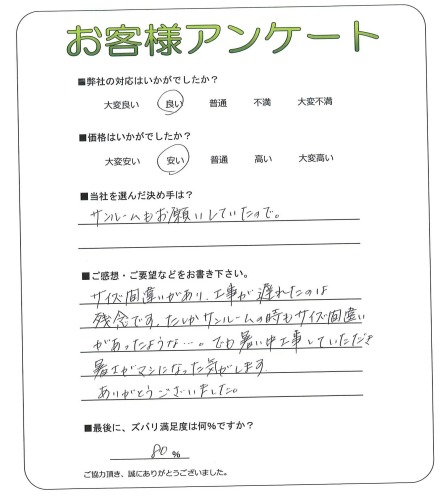 お客様アンケート
■弊社の対応はいかがでしたか？
大変良い 良い 普通 不満 大変不満
■価格はいかがでしたか？
大変安い 安い 普通 高い 大変高い
■当社を選んだ決め手は？
サンルームもお願いしていたので。
■ご感想・ご要望などをお書き下さい。
サイズ間違いがあり、工事が遅れたのは
残念です。たしかサンルームの時もサイズ間違い
があったような…。でも暑い中工事していただき
暑さがマシになった気がします。
ありがとうございました。
■最後に、ズバリ満足度は何％ですか？
80 %
ご協力頂き、誠にありがとうございました。